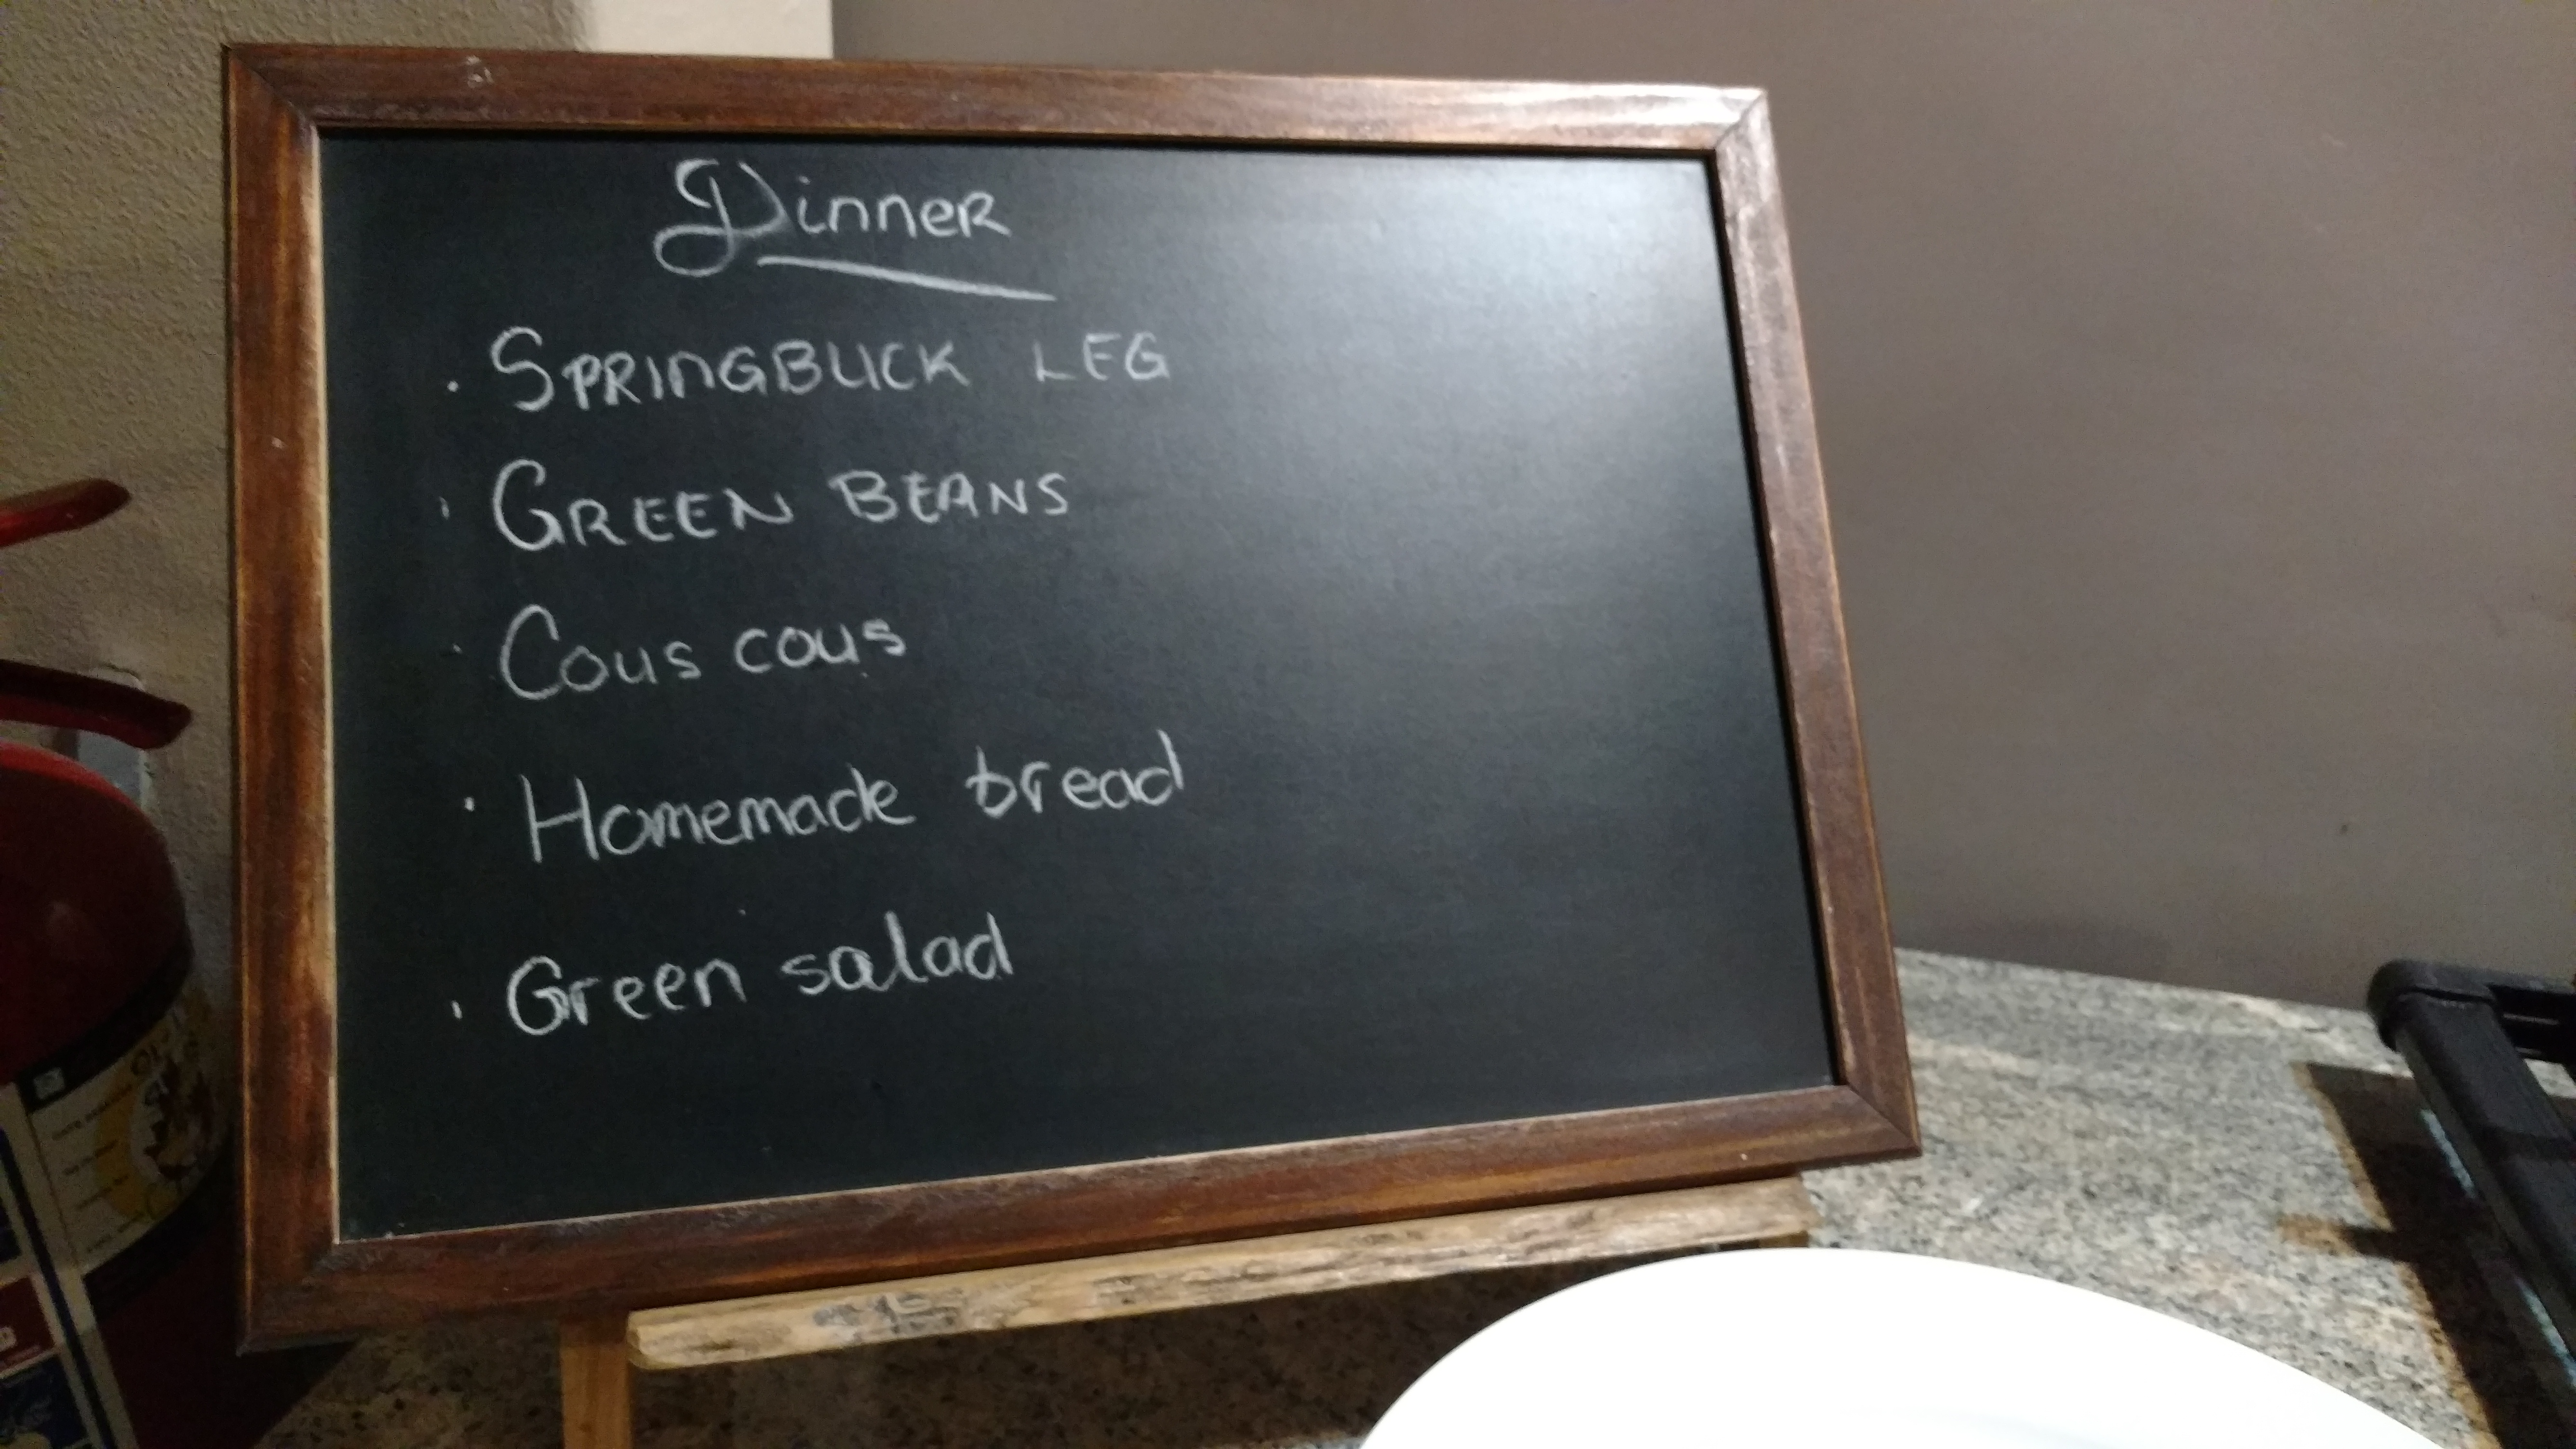 Dinner
· SPRINGBUCK LEG
· GREEN BEANS
· Cous cous
· Homemade bread
· Green salad